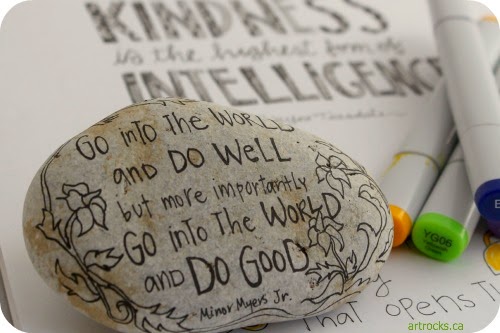 KINDNESS
is the highest form of
INTELLIGENCE
GO INTO THE WORLD
and DO WELL
but more importantly
GO INTO THE WORLD
and DO GOOD
Minor Myers Jr.
YG06
THAT OPENS
artrocks.ca